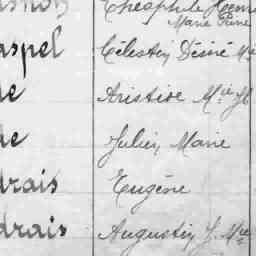 Théophile
Marie Reine
aspel Célestin Désiré Mie
de Aristide Mie
de Julien Marie
drais Eugène
drais Augustin J. Mie